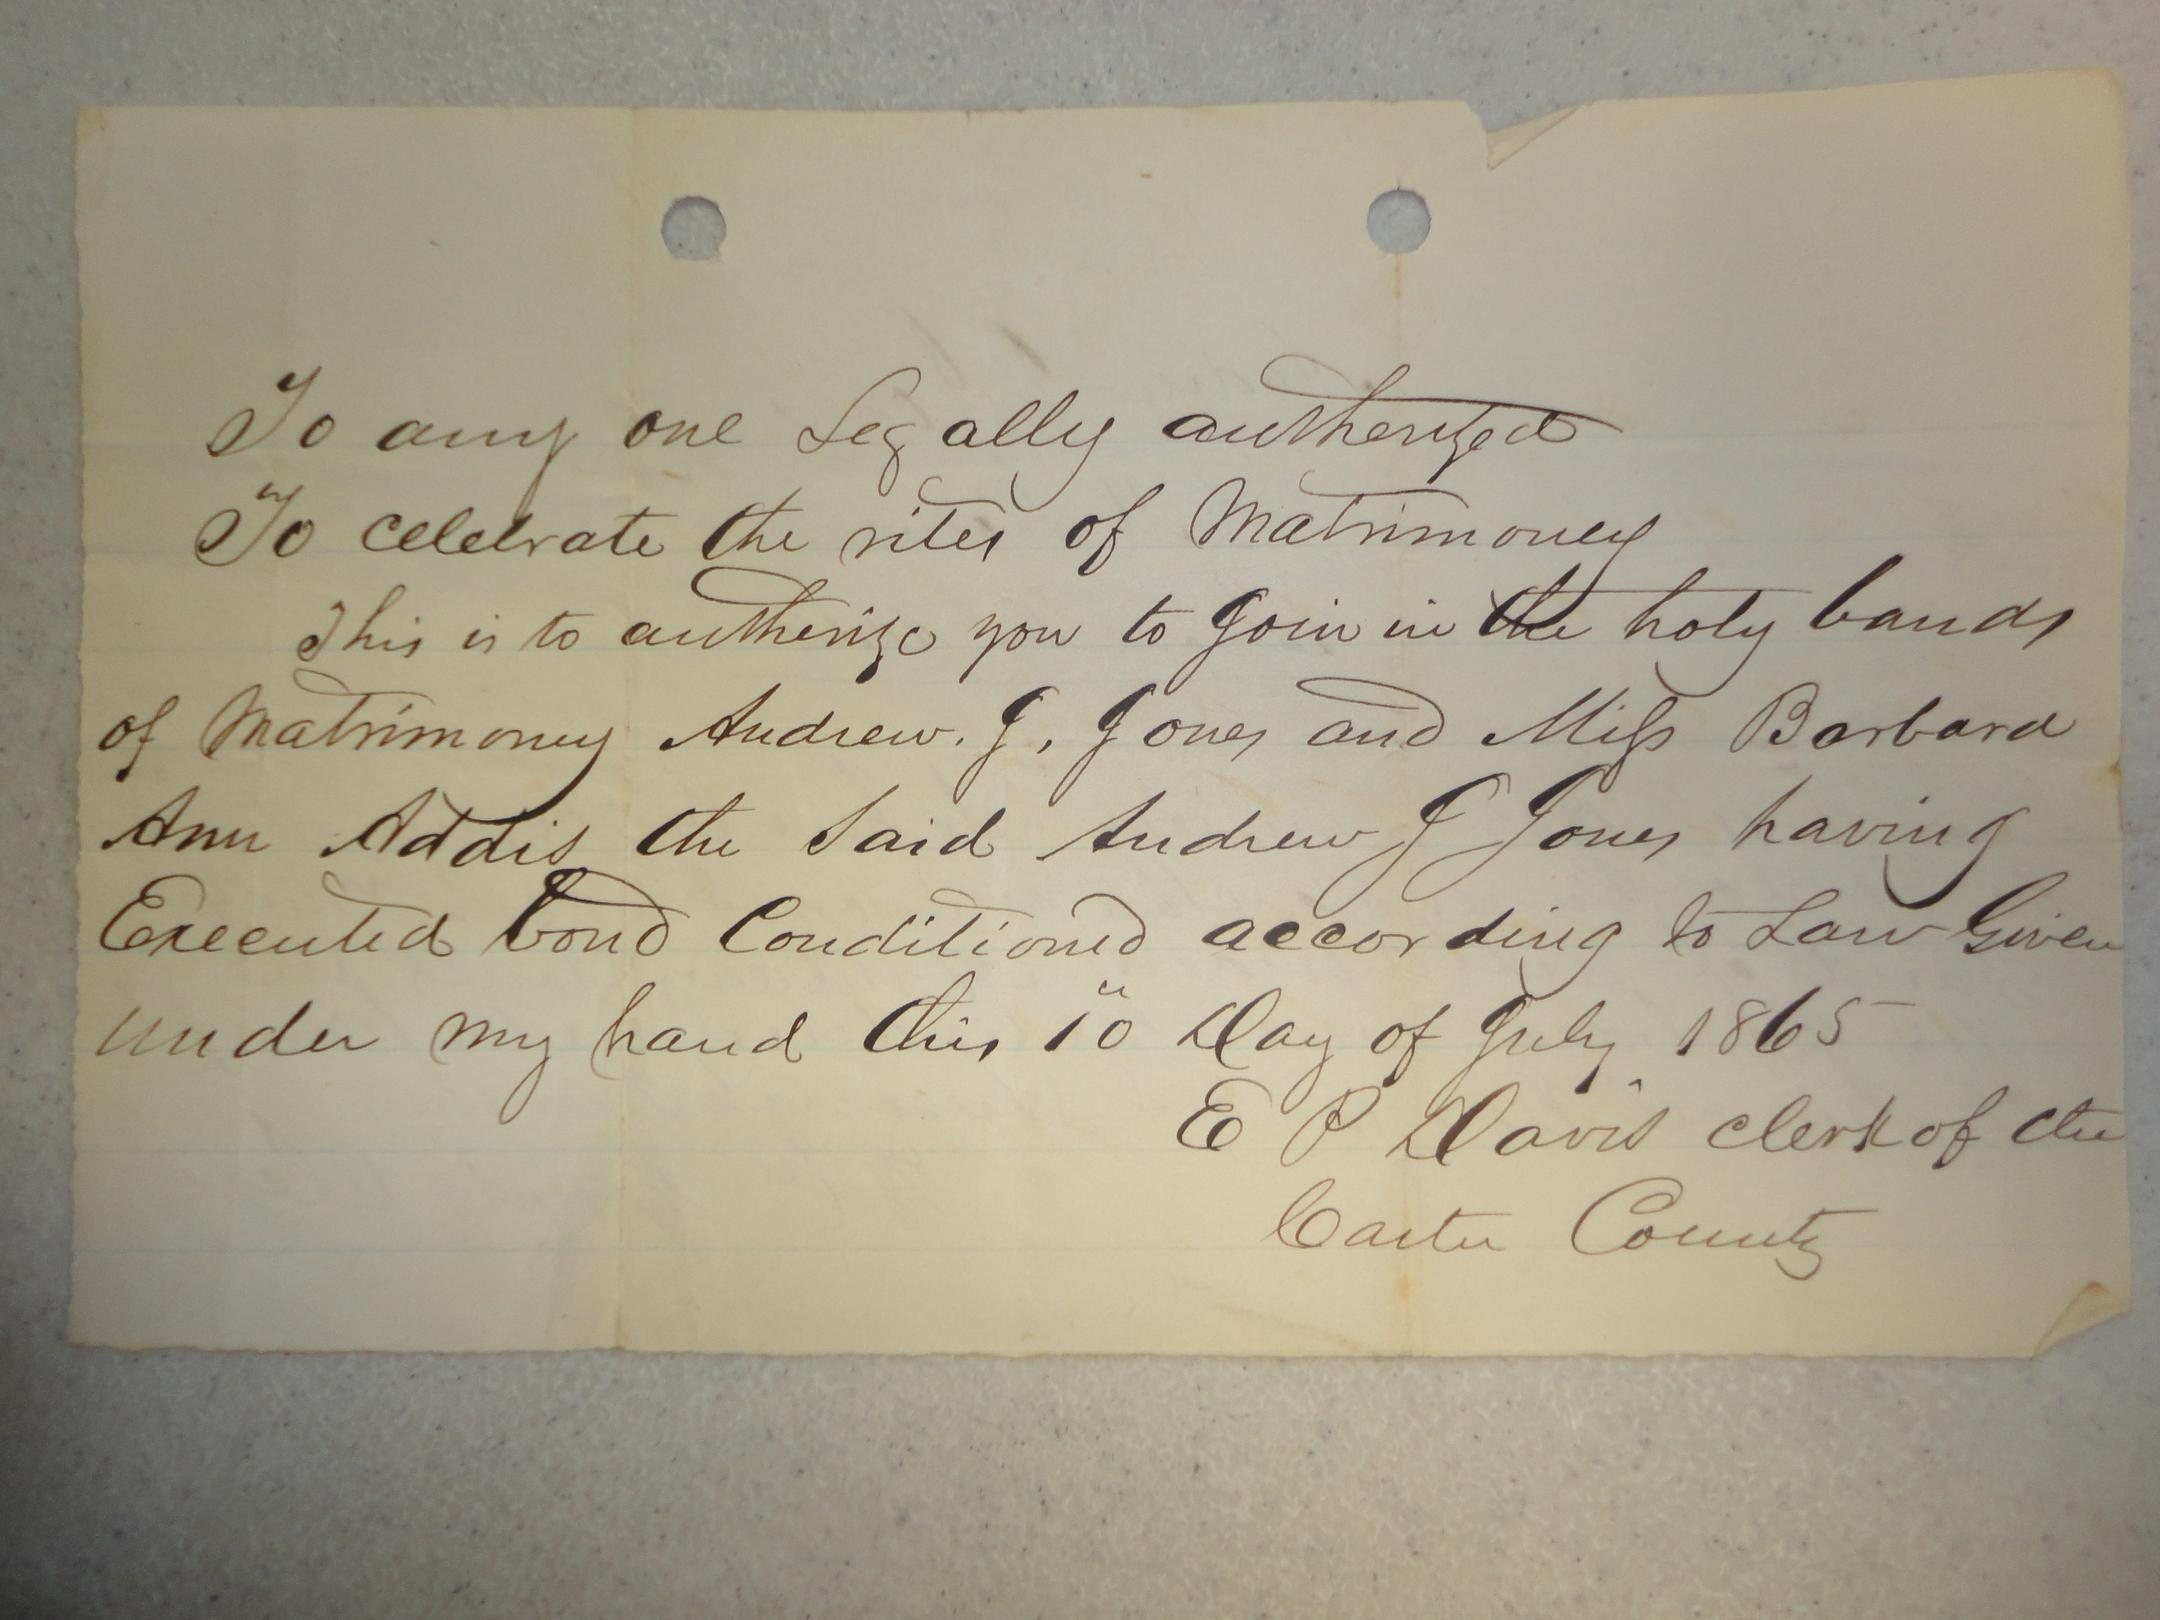 To any one Legally autherized
To celebrate the rites of Matrimoney
This is to autherize you to Join in the holy bands
of Matrimoney Andrew. J. Jones and Miss Barbara
Ann Addis the Said Andrew J Jones having
Executed bond Conditioned according to Law Given
under my hand this 10 Day of July 1865
E P Davis clerk of the
Carter County